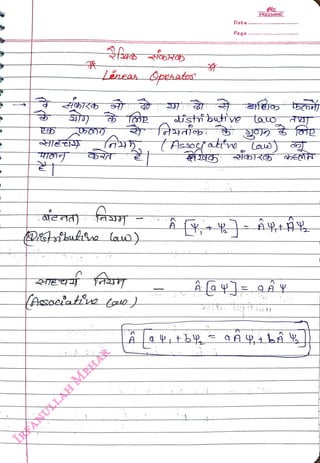 FREEMIND
Date
Page
रैखिक संकारक
Linear Operator
→ वे संकारक जो दो या दो से अधिक फलनों
के योग के लिए distributive law तथा
एक फलन से नियतांक के गुणन के लिए
साहचर्य नियम (Associative law) का
पालन करते है। रैखिक संकारक कहलाते
है।
बंटनता नियम - Â [Ψ₁ + Ψ₂] = ÂΨ₁ + ÂΨ₂
(Distributive law)
साहचर्य नियम - Â [aΨ] = a ÂΨ
(Associative law)
Â [aΨ₁ + bΨ₂ = a ÂΨ₁ + b ÂΨ₂]
IRFANULLAH MEHAR